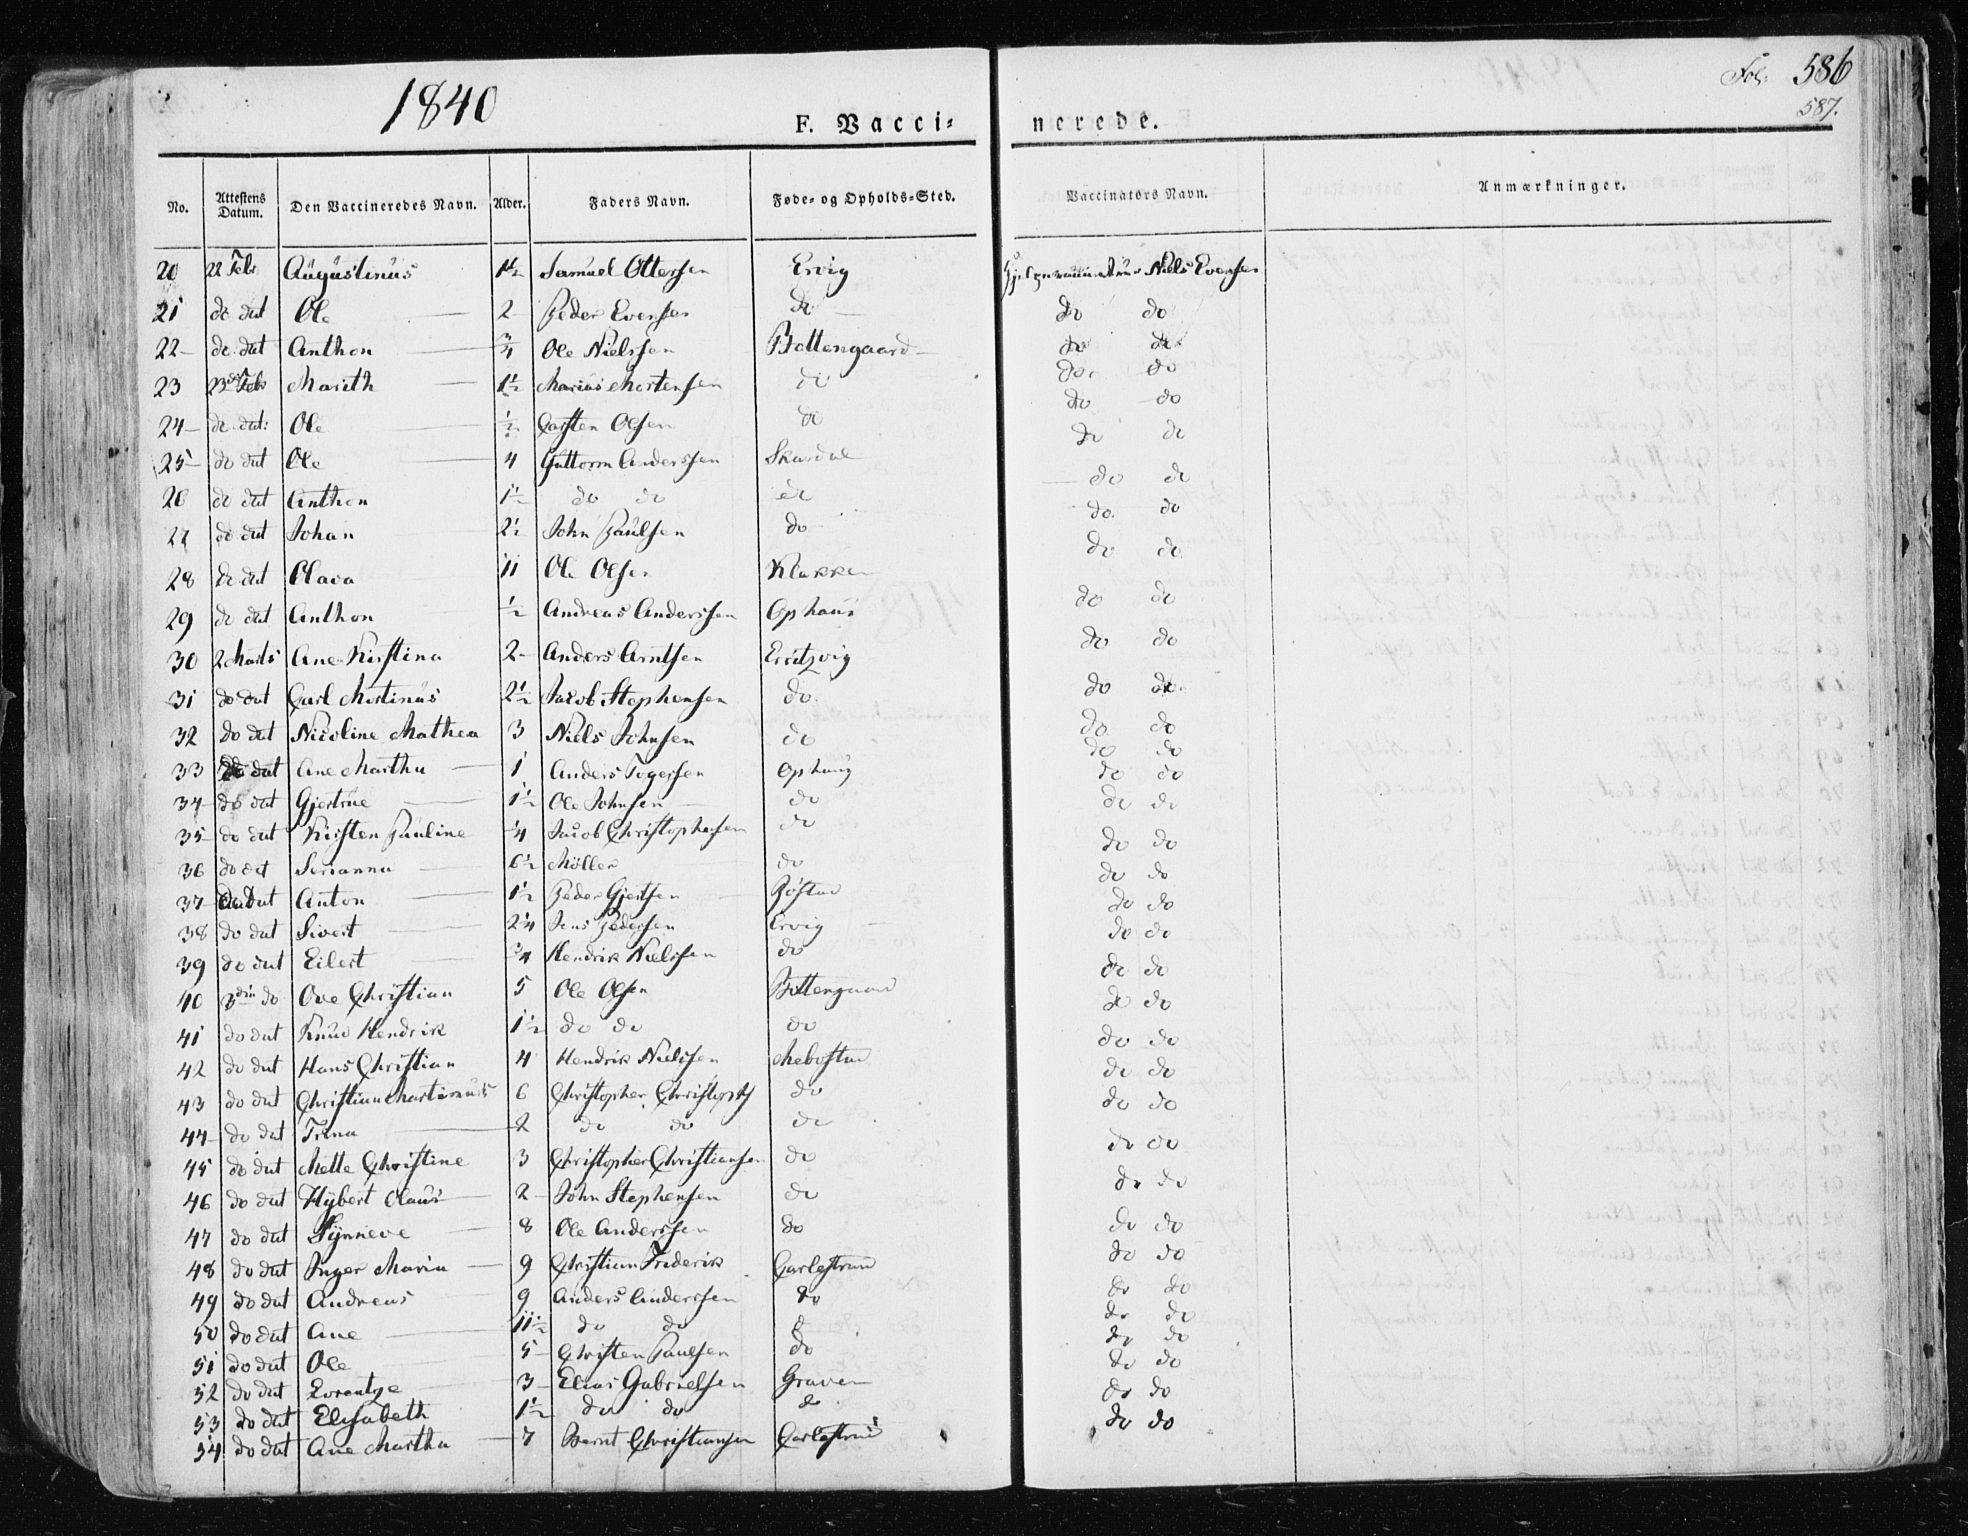 1840
Fol: 586
587.
F. Vacci= nerede.
No. Attestens Datum. Den Vaccineredes Navn. Alder. Faders Navn. Føde= og Opholds=Sted. Vaccinatørs Navn. Anmærkninger.
20 22 Febr Augustinus 1½ Samuel Ottersen Ervig Hjelpevaccinateur Niels Evensen
21 do dat Ole 2 Peder Evensen do do do
22 do dat Anthon ¾ Ole Nielssen Bottengaard do do
23 23de Febr Marith 1½ Marius Mortensen do do do
24 do dat: Ole ½ Carsten Olsen do do do
25 do dat Ole 4 Guttorm Anderssen Skardal do do
26 do dat Anthon 1½ do do do do do
27 do dat Johan 2½ John Paulsen do do do
28 do dat Olava 11 Ole Olsen Klakken do do
29 do dat Anthon ½ Andreas Anderssen Ophaug do do
30 2 Marts Ane Kirstina 2 Anders Arntsen Ervigvig do do
31 do dat Carl Mortinus 2½ Jacob Stephensen do do do
32 do dat Nicoline Mathea 3 Niels Johnsen do do do
33 do dat Ane Martha 1 Anders Togersen Ophaug do do
34 do dat Gjertrue 1½ Ole Johnsen do do do
35 do dat Kirsten Pauline ¼ Jacob Christophersen do do do
36 do dat Serianna 6½ Möller do do do
37 do dat Anton 1½ Peder Gjertsen Röstad do do
38 do dat Sivert 2¼ Jens Pedersen Ervig do do
39 do dat Eilert ¾ Hendrik Nielssen do do do
40 3die do Ove Christian 5 Ole Olsen Bottengaard do do
41 do dat Knud Hendrik 1½ do do do do do
42 do dat Hans Christian 4 Hendrik Nielssen Mebostad do do
43 do dat Christian Martinus 6 Christopher Christophs do do do
44 do dat Trina 2 do do do do do
45 do dat Mette Christine 3 Christopher Christiansen do do do
46 do dat Hybert Olaus 2 John Stephensen do do do
47 do dat Synneve 8 Ole Anderssen do do do
48 do dat Inger Maria 9 Christian Frederik Garlestrand do do
49 do dat Andreas 9 Anders Anderssen do do do
50 do dat Ane 11½ do do do do do
51 do dat Ole 5 Christen Paulsen do do do
52 do dat Lorentze 3 Elias Gabrielsen Graven do do
53 do dat Elisabeth 1½ do do do do do
54 do dat Ane Martha 7 Bernt Christiansen Garlestrand do do